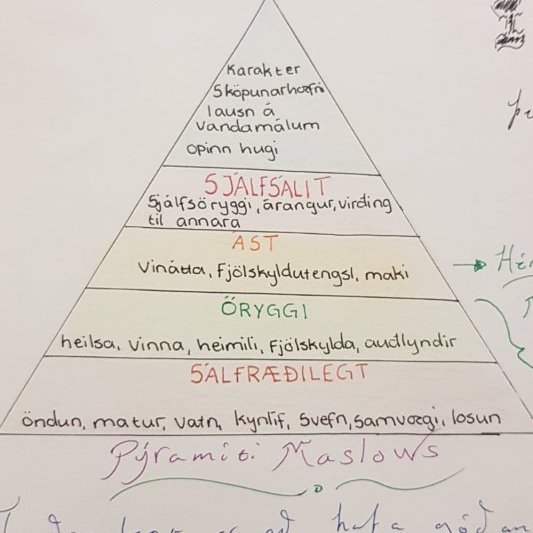 Karakter
Sköpunarhæfni
lausn á
vandamálum
opinn hugi
SJÁLFSÁLIT
Sjálfsöryggi, árangur, virding
til annara
ÁST
Vinátta, Fjölskyldutengsl, maki
ÖRYGGI
heilsa, vinna, heimili, Fjölskylda, audlyndir
SÁLFRÆÐILEGT
öndun, matur, vatn, kynlíf, svefn, samvægi, losun
Pýramíti Maslows
að hafa góðan